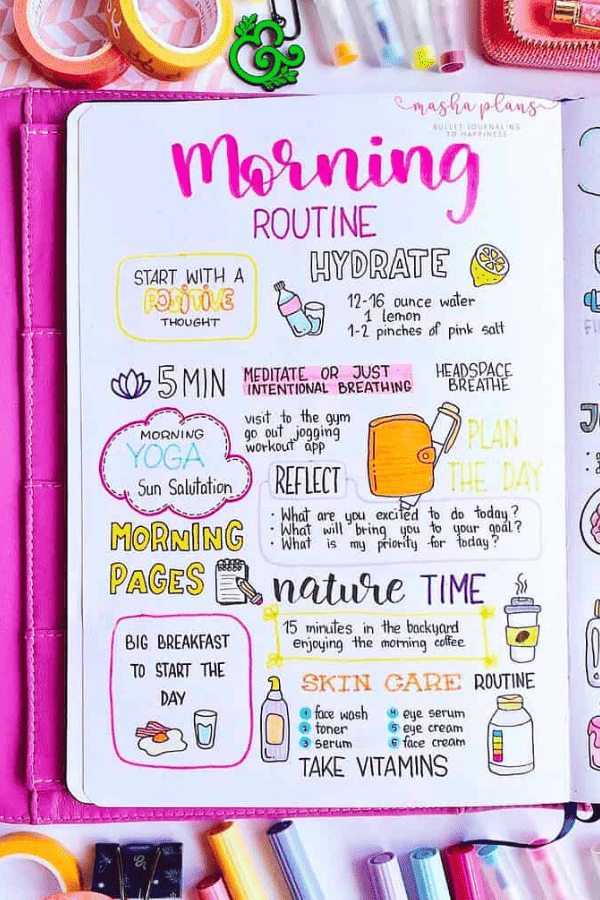 masha plans
BULLET JOURNALING
TO HAPPINESS
Morning
ROUTINE
START WITH A
POSITIVE
THOUGHT
HYDRATE
12-16 ounce water
1 lemon
1-2 pinches of pink salt
5 MIN
MEDITATE OR JUST
INTENTIONAL BREATHING
HEADSPACE
BREATHE
MORNING
YOGA
Sun Salutation
visit to the gym
go out jogging
workout app
PLAN
THE DAY
REFLECT
• What are you excited to do today?
• What will bring you to your goal?
• What is my priority for today?
MORNING
PAGES
nature TIME
15 minutes in the backyard
enjoying the morning coffee
BIG BREAKFAST
TO START THE
DAY
SKIN CARE ROUTINE
1 face wash
2 toner
3 serum
4 eye serum
5 eye cream
6 face cream
TAKE VITAMINS